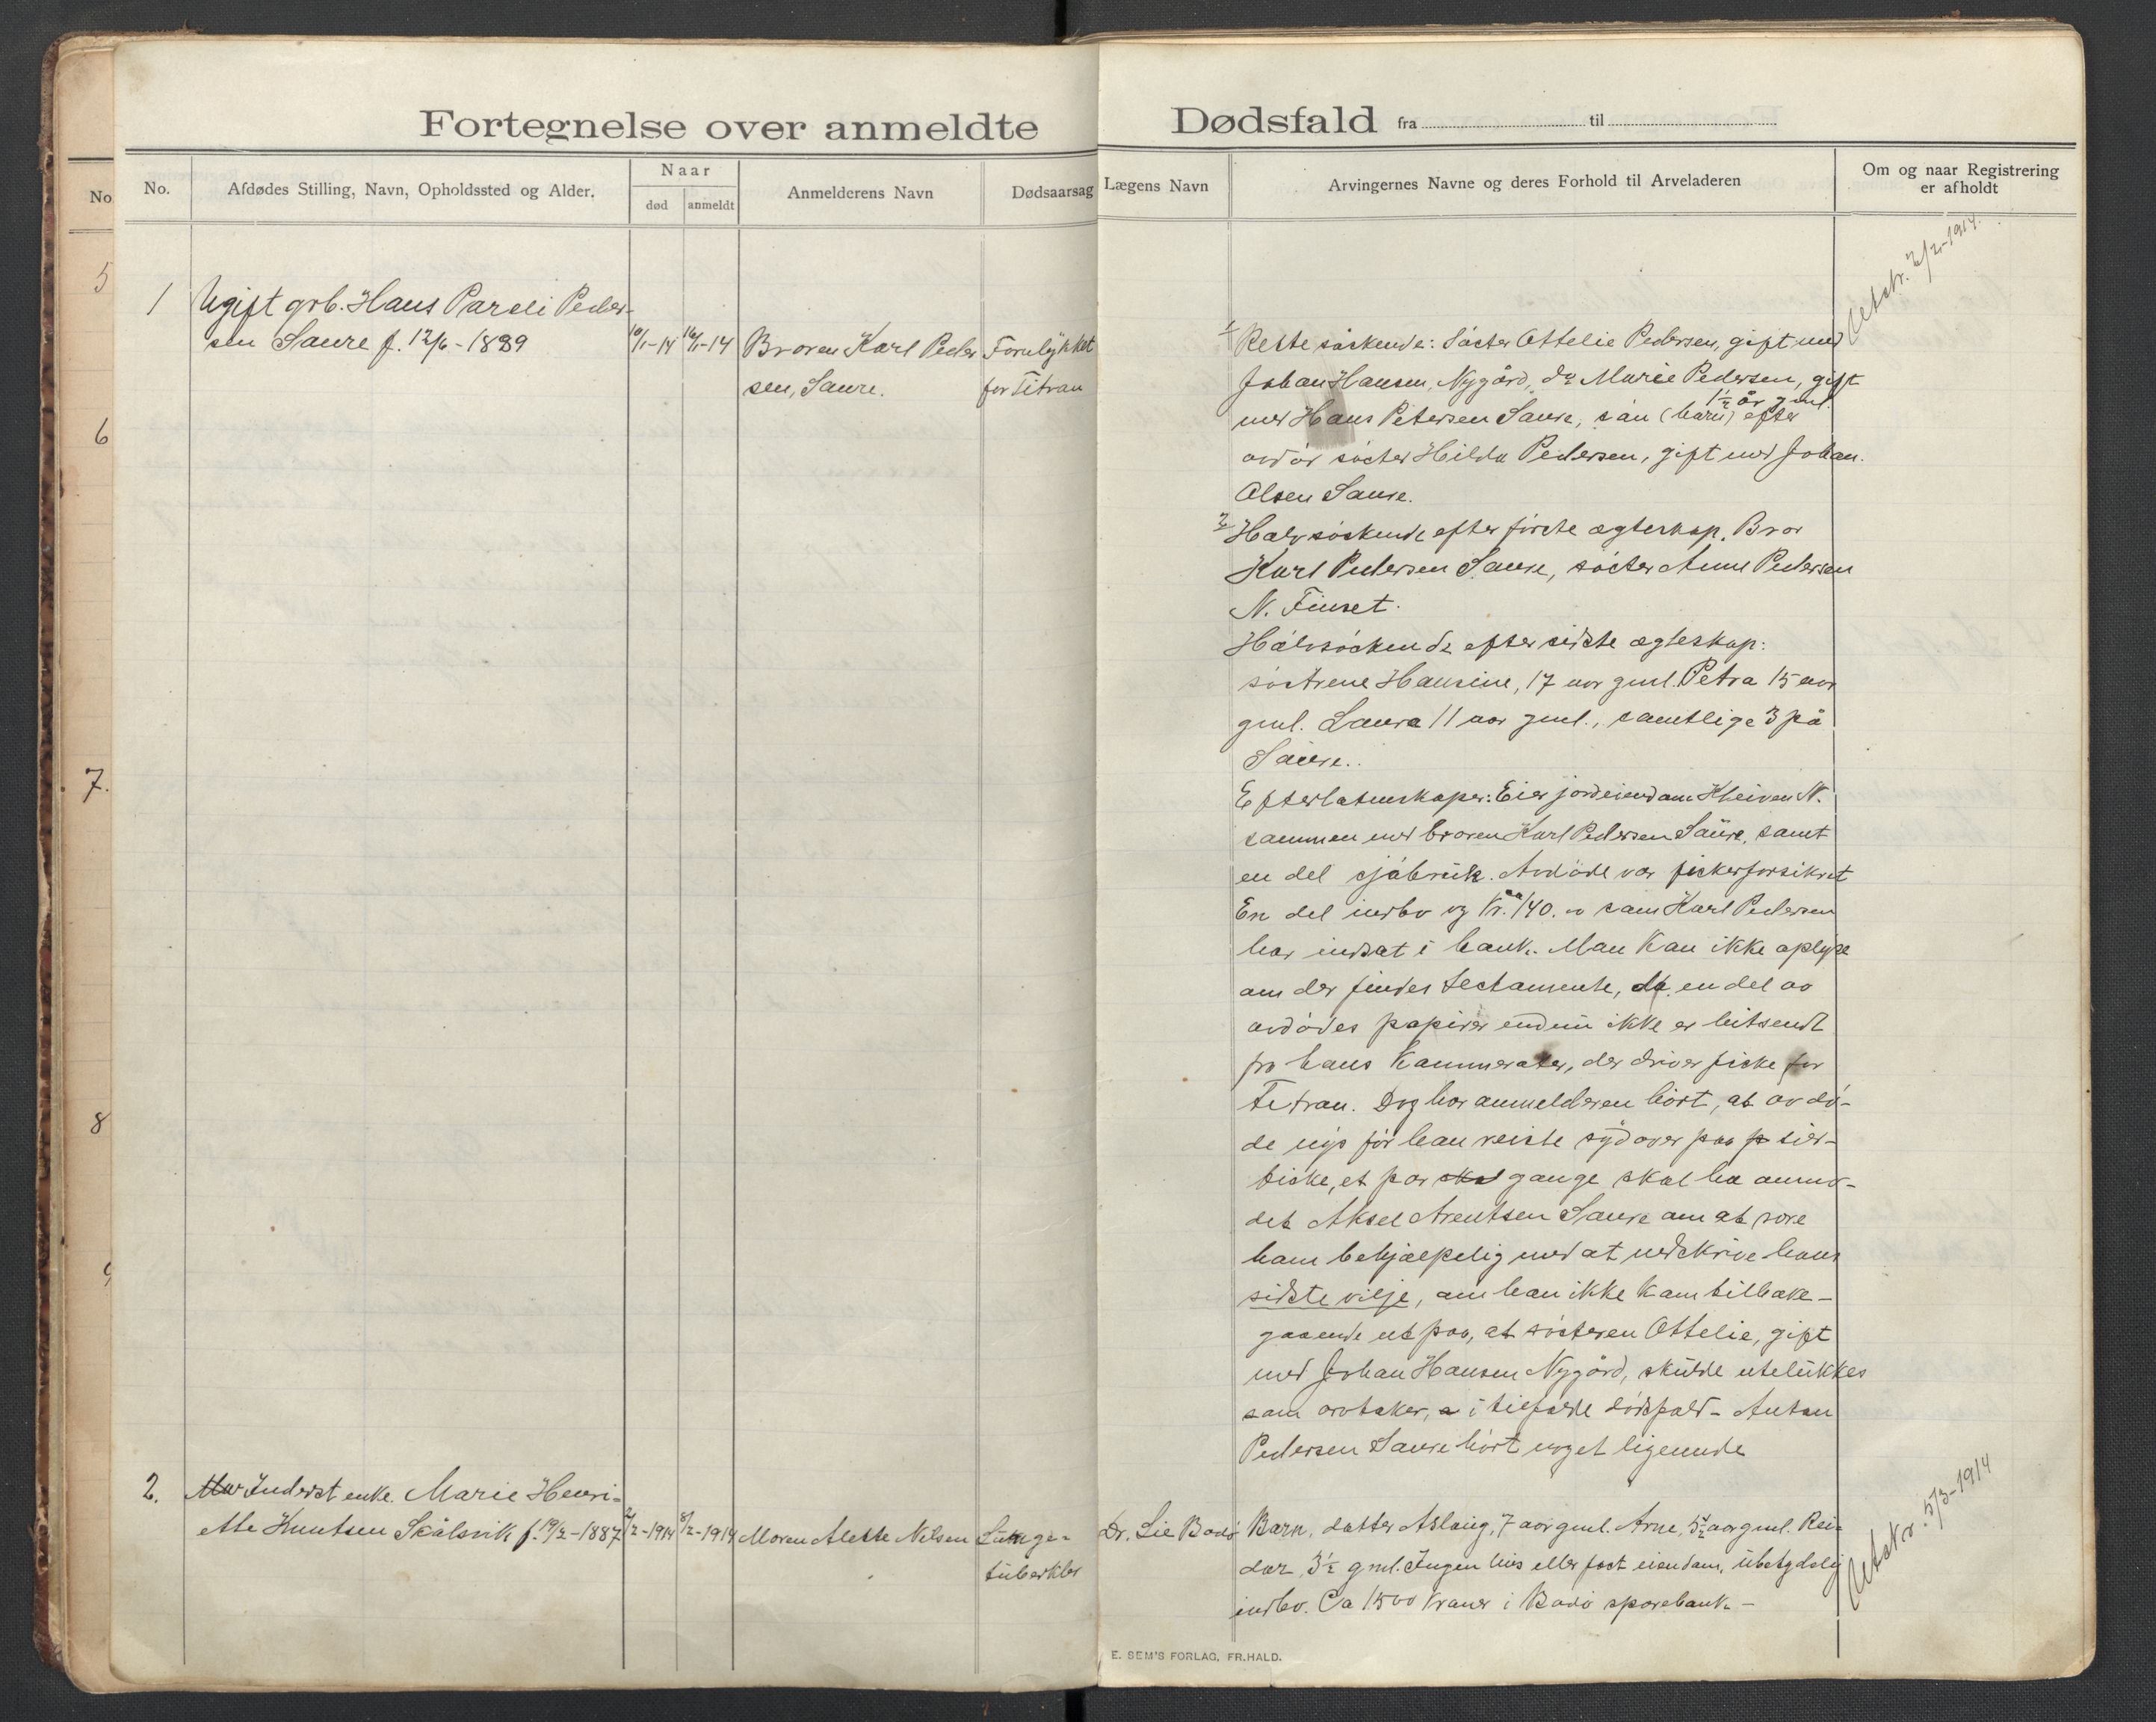 Fortegnelse over anmeldte Dødsfald fra til
No. Afdødes Stilling, Navn, Opholdssted og Alder. Naar død anmeldt Anmelderens Navn Dødsaarsag Lægens Navn Arvingernes Navne og deres Forhold til Arveladeren Om og naar Registrering er afholdt
No
5
6
7.
8
9
1 Ugift grb. Hans Pareli Peder-
sen Saure f. 12/6-1889
10/1-14 16/1-14
Broren Karl Peder
sen, Saure.
Forulykket
for Titran
Utskr. 2/2-1914.
1/ Rette søskende: Søster Ottelie Pedersen, gift med
Johan Hansen, Nygård, do Marie Pedersen, gift
1½ år gml.
med Hans Petersen Saure, søn (barn) efter
avdør søster Hilda Pedersen, gift med Johan
Olsen Saure.
2/ Halvsøskende efter første ægteskap. Bror
Karl Pedersen Saure, søster Anne Pedersen
N. Finset.
Halvsøskende efter sidste ægteskap:
søstrene Hansine, 17 aar gml. Petra 15 aar
gml. Laura 11 aar gml., samtlige 3 på
Saure.
Efterlatenskaper: Eier jordeiendom Kleiven N.
sammen med broren Karl Pedersen Saure, samt
en del sjøbruk. Avdøde var fiskerforsikret
En del indbo og Kr. 140.00 som Karl Pedersen
har indsat i bank. Man kan ikke oplyse
om der findes testamente, da en del av
avdødes papirer endnu ikke er hitsendt
fra hans kammerater, der driver fiske for
Titran. Dog har anmelderen hørt, at avdø-
de nys før han reiste sydover paa p sier-
fiske, et par skal gange skal ha anmo-
det Aksel Arentsen Saure om at være
ham behjælpelig med at nedskrive hans
sidste vilje, om han ikke kom tilbake -
gaaende ut paa, at søsteren Ottelie, gift
med Johan Hansen Nygård, skulde utelukkes
som arvtaker, i tilfælde dødsfald - Anton
Pedersen Saure hørt noget lignende
2. Mar Inderst enke. Marie Henri-
ette Knutsen Skålsvik f. 19/2-1887
2/2-1914 8/2-1914
Moren Alette Nilsen
Lunge-
tuberklos
Dr. Lie Bodø
Barn, datter Aslaug, 7 aar gml. Arne, 5½ aar gml. Rei-
dar 3½ gml. Ingen hus eller fast eiendom, ubetydelig
indbo. Ca 1500 kroner i Bodø sparebank -
Utskr. 5/3-1914
E. SEM'S FORLAG, FR.HALD.